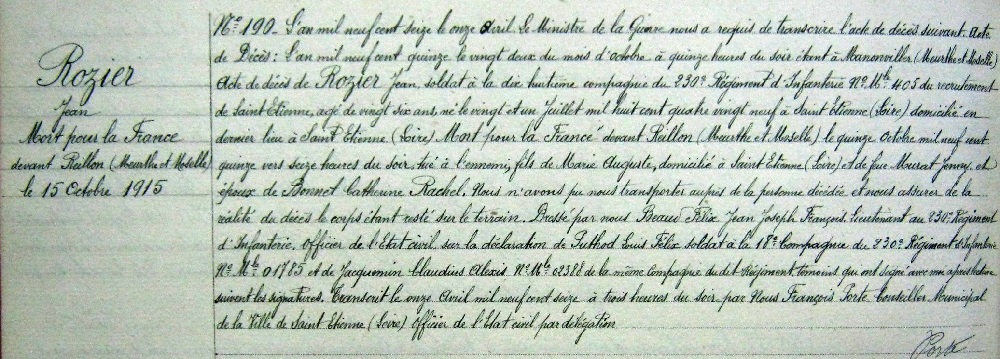 Rozier
Jean
Mort pour la France
devant Reillon (Meurthe et Moselle)
le 15 Octobre 1915
N° 190_ L'an mil neuf cent seize le onze Avril. Le Ministre de la Guerre nous a requis de transcrire l'acte de décès suivant. Acte
de Décès: L'an mil neuf cent quinze le vingt deux du mois d'octobre à quinze heures du soir étant à Manonviller (Meurthe et Moselle)
Acte de décès de Rozier Jean, soldat à la dix huitième compagnie du 230e Régiment d'Infanterie N° Mle 405 du recrutement
de Saint Etienne, âgé de vingt six ans, né le vingt et un Juillet mil huit cent quatre vingt neuf à Saint Etienne (Loire) domicilié en
dernier lieu à Saint Etienne (Loire) "Mort pour la France" devant Reillon (Meurthe et Moselle) le quinze Octobre mil neuf cent
quinze vers seize heures du soir, tué à l'ennemi, fils de Marie Auguste, domicilié à Saint Etienne (Loire) et de feue Mourat Jenny, et
époux de Bonnet Catherine Rachel. Nous n'avons pu nous transporter auprès de la personne décédée et nous assurer de la
réalité du décès le corps étant resté sur le terrain. Dressé par nous Beaud Félix Jean Joseph François, Lieutenant au 230e Régiment
d'Infanterie, Officier de l'Etat civil, sur la déclaration de Puthod Louis Félix soldat à la 18e Compagnie du 230e Régiment d'Infanterie
N° Mle 01785 et de Jacquemin Claudius Alexis N° Mle 02388 de la même Compagnie du dit Régiment témoins qui ont signé avec moi après lecture
suivent les signatures. Transcrit le onze Avril mil neuf cent seize à trois heures du soir par Nous François Porte Conseiller Municipal
de la Ville de Saint Etienne (Loire) Officier de l'Etat civil par délégation
Porte